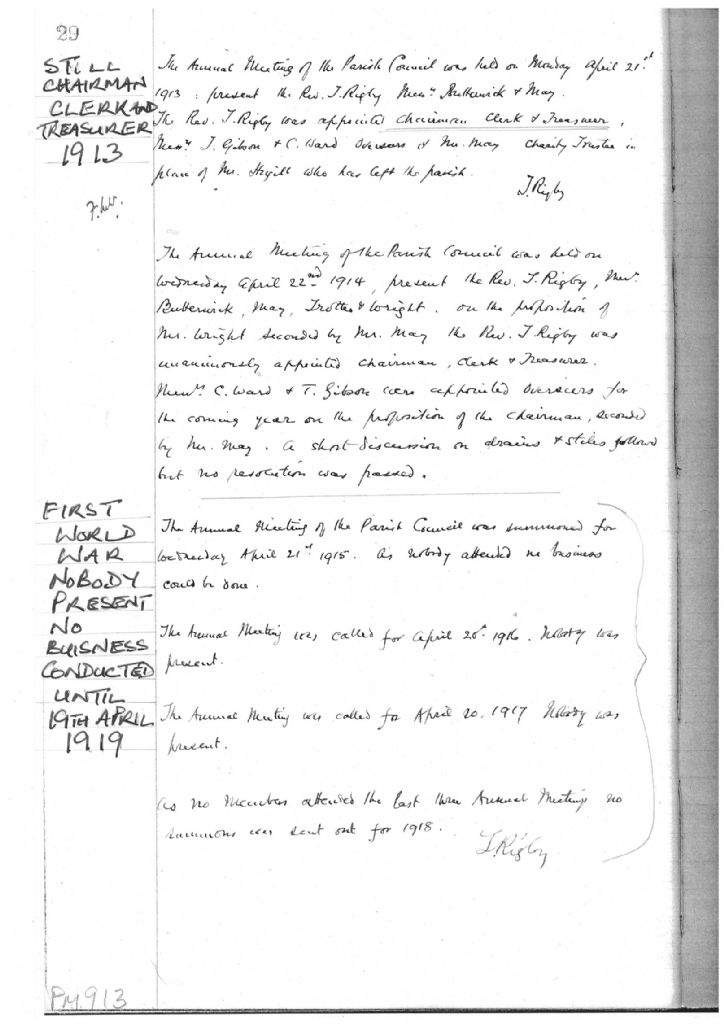 29
STILL
CHAIRMAN
CLERK AND
TREASURER
1913
The Annual Meeting of the Parish Council was held on Monday April 21st
1913: present the Rev. T. Rigby Messrs Butterwick & May.
The Rev. T. Rigby was appointed Chairman Clerk & Treasurer,
Messrs T. Gibson & C. Ward Overseers & Mr. May Charity Trustee in
place of Mr. who has left the parish.
T. Rigby
The Annual Meeting of the Parish Council was held on
Wednesday April 22nd 1914, present the Rev. T. Rigby, Messrs
Butterwick, May, Trotter & Wright. On the proposition of
Mr. Wright seconded by Mr. May the Rev. T Rigby was
unanimously appointed Chairman, Clerk & Treasurer.
Messrs C. Ward & T. Gibson were appointed Overseers for
the coming year on the proposition of the Chairman, seconded
by Mr. May. A short discussion on drains & stiles followed
but no resolution was passed.
FIRST
WORLD
WAR
NOBODY
PRESENT
NO
BUISNESS
CONDUCTED
UNTIL
19TH APRIL
1919
The Annual Meeting of the Parish Council was summoned for
Wednesday April 21st 1915. As nobody attended no business
could be done.
The Annual Meeting was called for April 20th 1916. Nobody was
present.
The Annual Meeting was called for April 20. 1917 Nobody was
present.
As no Members attended the last three Annual Meetings no
summons was sent out for 1918.
T. Rigby
PM.913